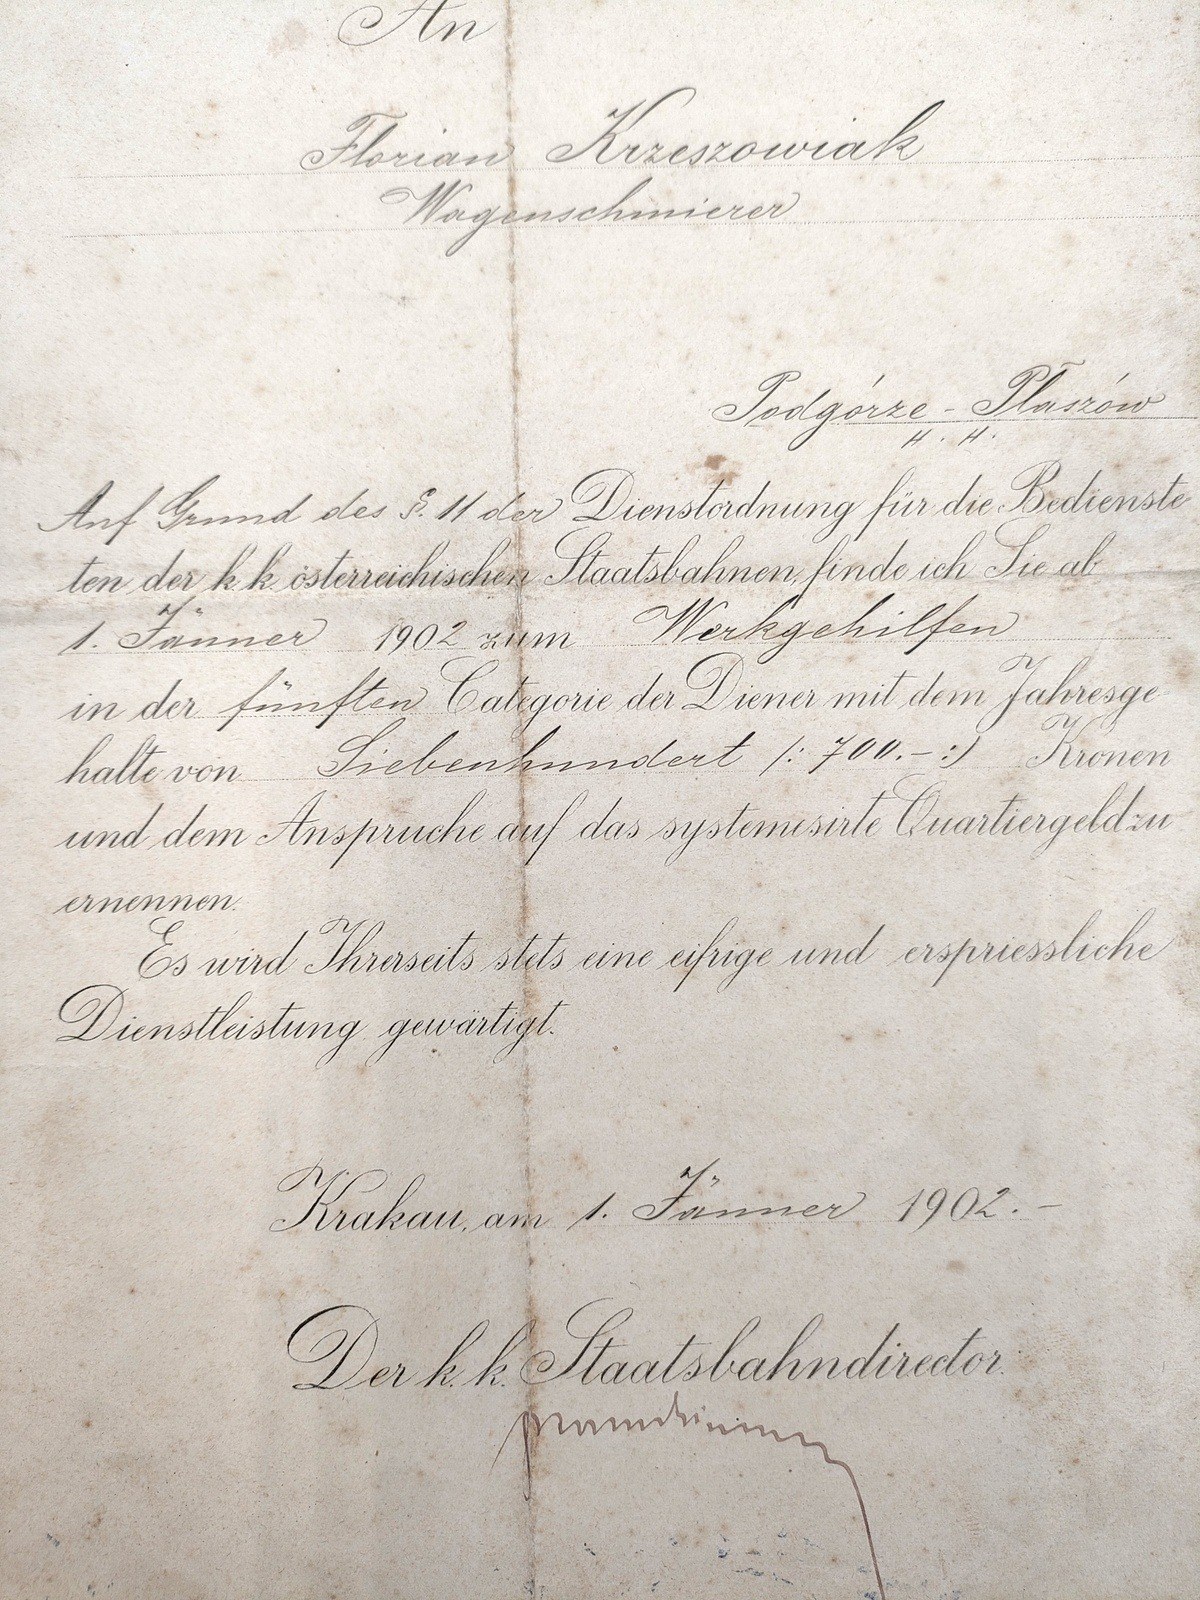 An
Florian Krzeszowiak
Wagenschmierer
Podgórze - Płaszów
Auf Grund des §. 11 der Dienstordnung für die Bedienste
ten der k.k. österreichischen Staatsbahnen, finde ich Sie ab
1. Jänner 1902 zum Werkgehilfen
in der fünften Categorie der Diener mit dem Jahresge
halte von Siebenhundert /: 700.- :/ Kronen
und dem Anspruche auf das systemesirte Quartiergeld zu
ernennen.
Es wird Ihrerseits stets eine eifrige und erspriessliche
Dienstleistung gewärtigt.
Krakau, am 1. Jänner 1902.-
Der k.k. Staatsbahndirector.